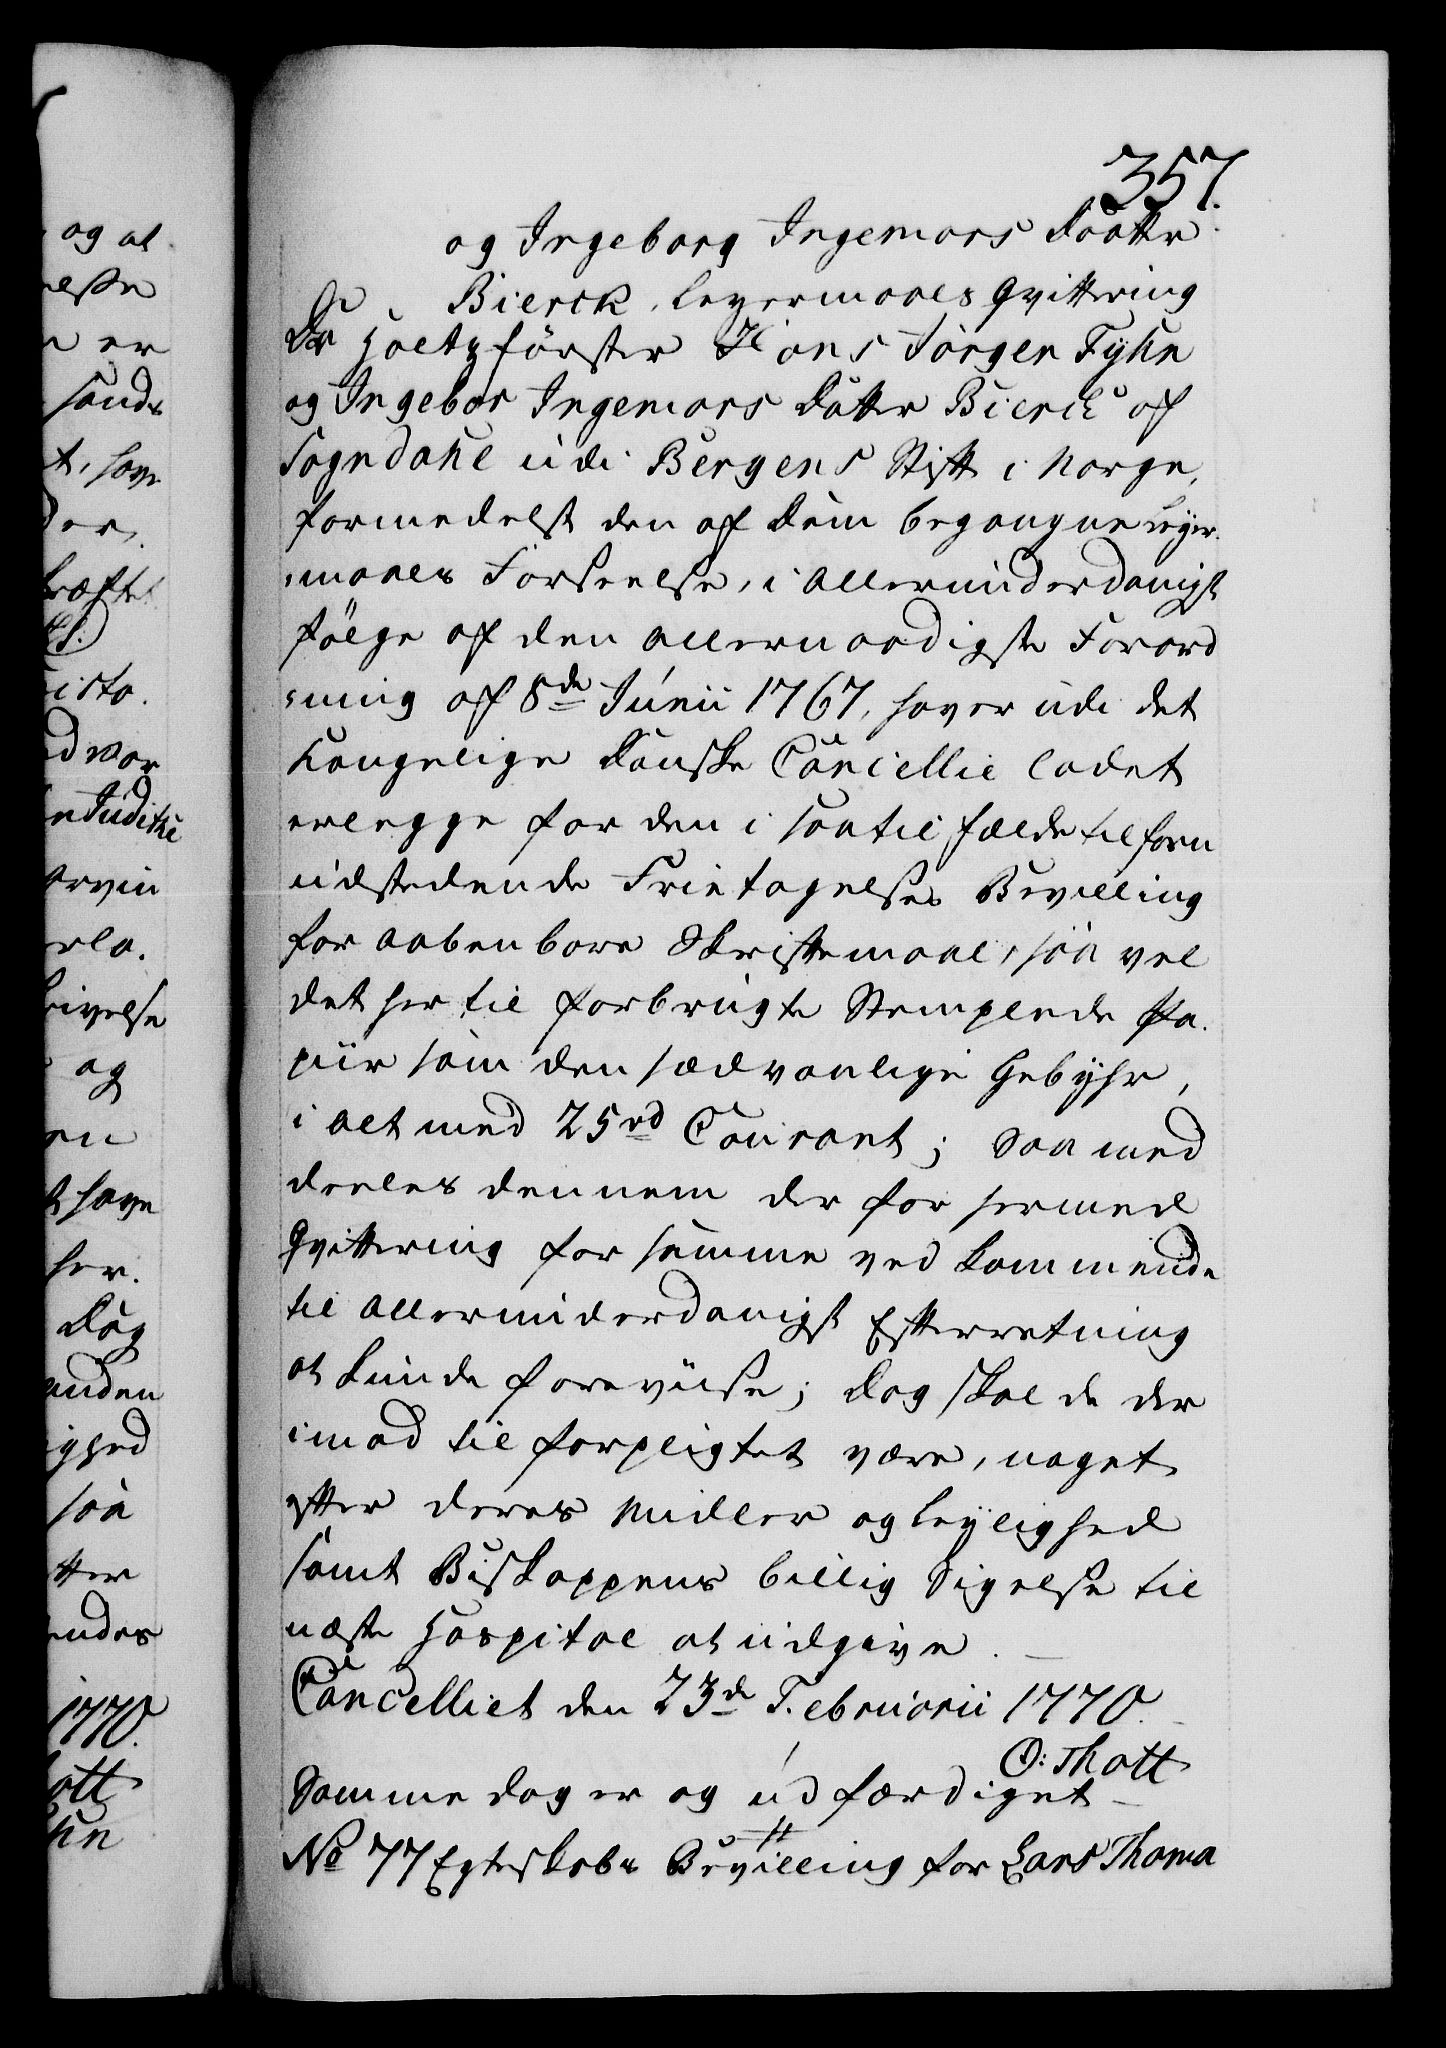 og at
else
er
sands
t, have
der,
kræftet
cista.
ad var
Judithe
arvin
erla.
rivelse
og
en
t have
her.
Dog
anden
ighed
saa
tter
endes
1770.
ott
hn
357.
og Ingeborg Ingemars Daatter
Bierck, Leyermaals Qvittering
Da Holtzförster Hans Jörgen Fyhn
og Ingebor Ingemars Datter Bierck af
Sogndahl udi Bergens Stift i Norge,
formedelst den af dem begangne Leyer-
maals Forseelse, i allerunderdanigst
fölge af den allernaadigste Forord
ning af 8de Junii 1767, haver udi det
Kongelige Danske Cancellie ladet
erlegge for den i saa tilfælde tilforn
udstedende Fritagelses Bevilling
for aabenbare Skriftemaal, saa vel
det her til forbrugte Stemplede Pa-
piir som den sædvanlige Gebyhr,
i alt med 25 rd Courant; saa med
deeles dennem der for hermed
Qvittering for samme ved kommende
til allerunderdanigst Efterretning
at kunde foreviise; dog skal de der
imod til forpligtet være, noget
efter deres Midler og Leylighed
samt Biskoppens billig Sigelse til
næste Hospital at udgive.
Cancelliet den 23de Februarii 1770.
O: Thott
Samme dag er og udfærdiget
No 77 Egteskabs Bevilling for Lars Thoma